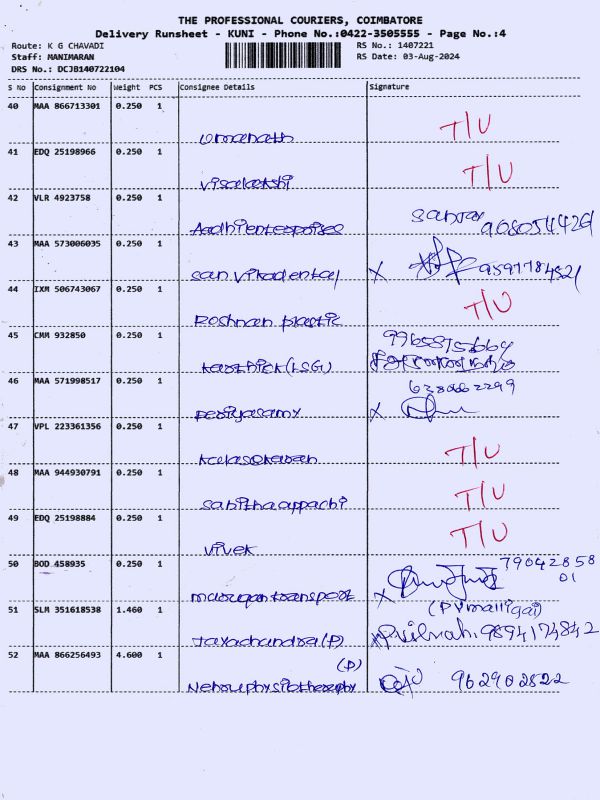 THE PROFESSIONAL COURIERS, COIMBATORE
Delivery Runsheet - KUNI - Phone No.:0422-3505555 - Page No.:4
Route: K G CHAVADI RS No.: 1407221
Staff: MANIMARAN RS Date: 03-Aug-2024
DRS No.: DCJB140722104
S No Consignment No Weight PCS Consignee Details Signature
40 MAA 866713301 0.250 1
umanath T/U
41 EDQ 25198966 0.250 1
visalatshi T/U
42 VLR 4923758 0.250 1
Aadhienterprises
43 MAA 573006035 0.250 1
sanvikadental X
44 IXM 506743067 0.250 1
Roshnan plastic T/U
45 CMM 932850 0.250 1
karthick(LSG)
46 MAA 571998517 0.250 1
periyasamy X
47 VPL 223361356 0.250 1
T/U
48 MAA 944930791 0.250 1
sabithaappachi T/U
49 EDQ 25198884 0.250 1
vivek T/U
50 BOD 458935 0.250 1
murugantransport X
51 SLM 351618538 1.460 1 (PVmalligai)
Jayachandra(P) 9894174842
52 MAA 866256493 4.600 1
(P)
Nehruphysiotheraphy 962902822